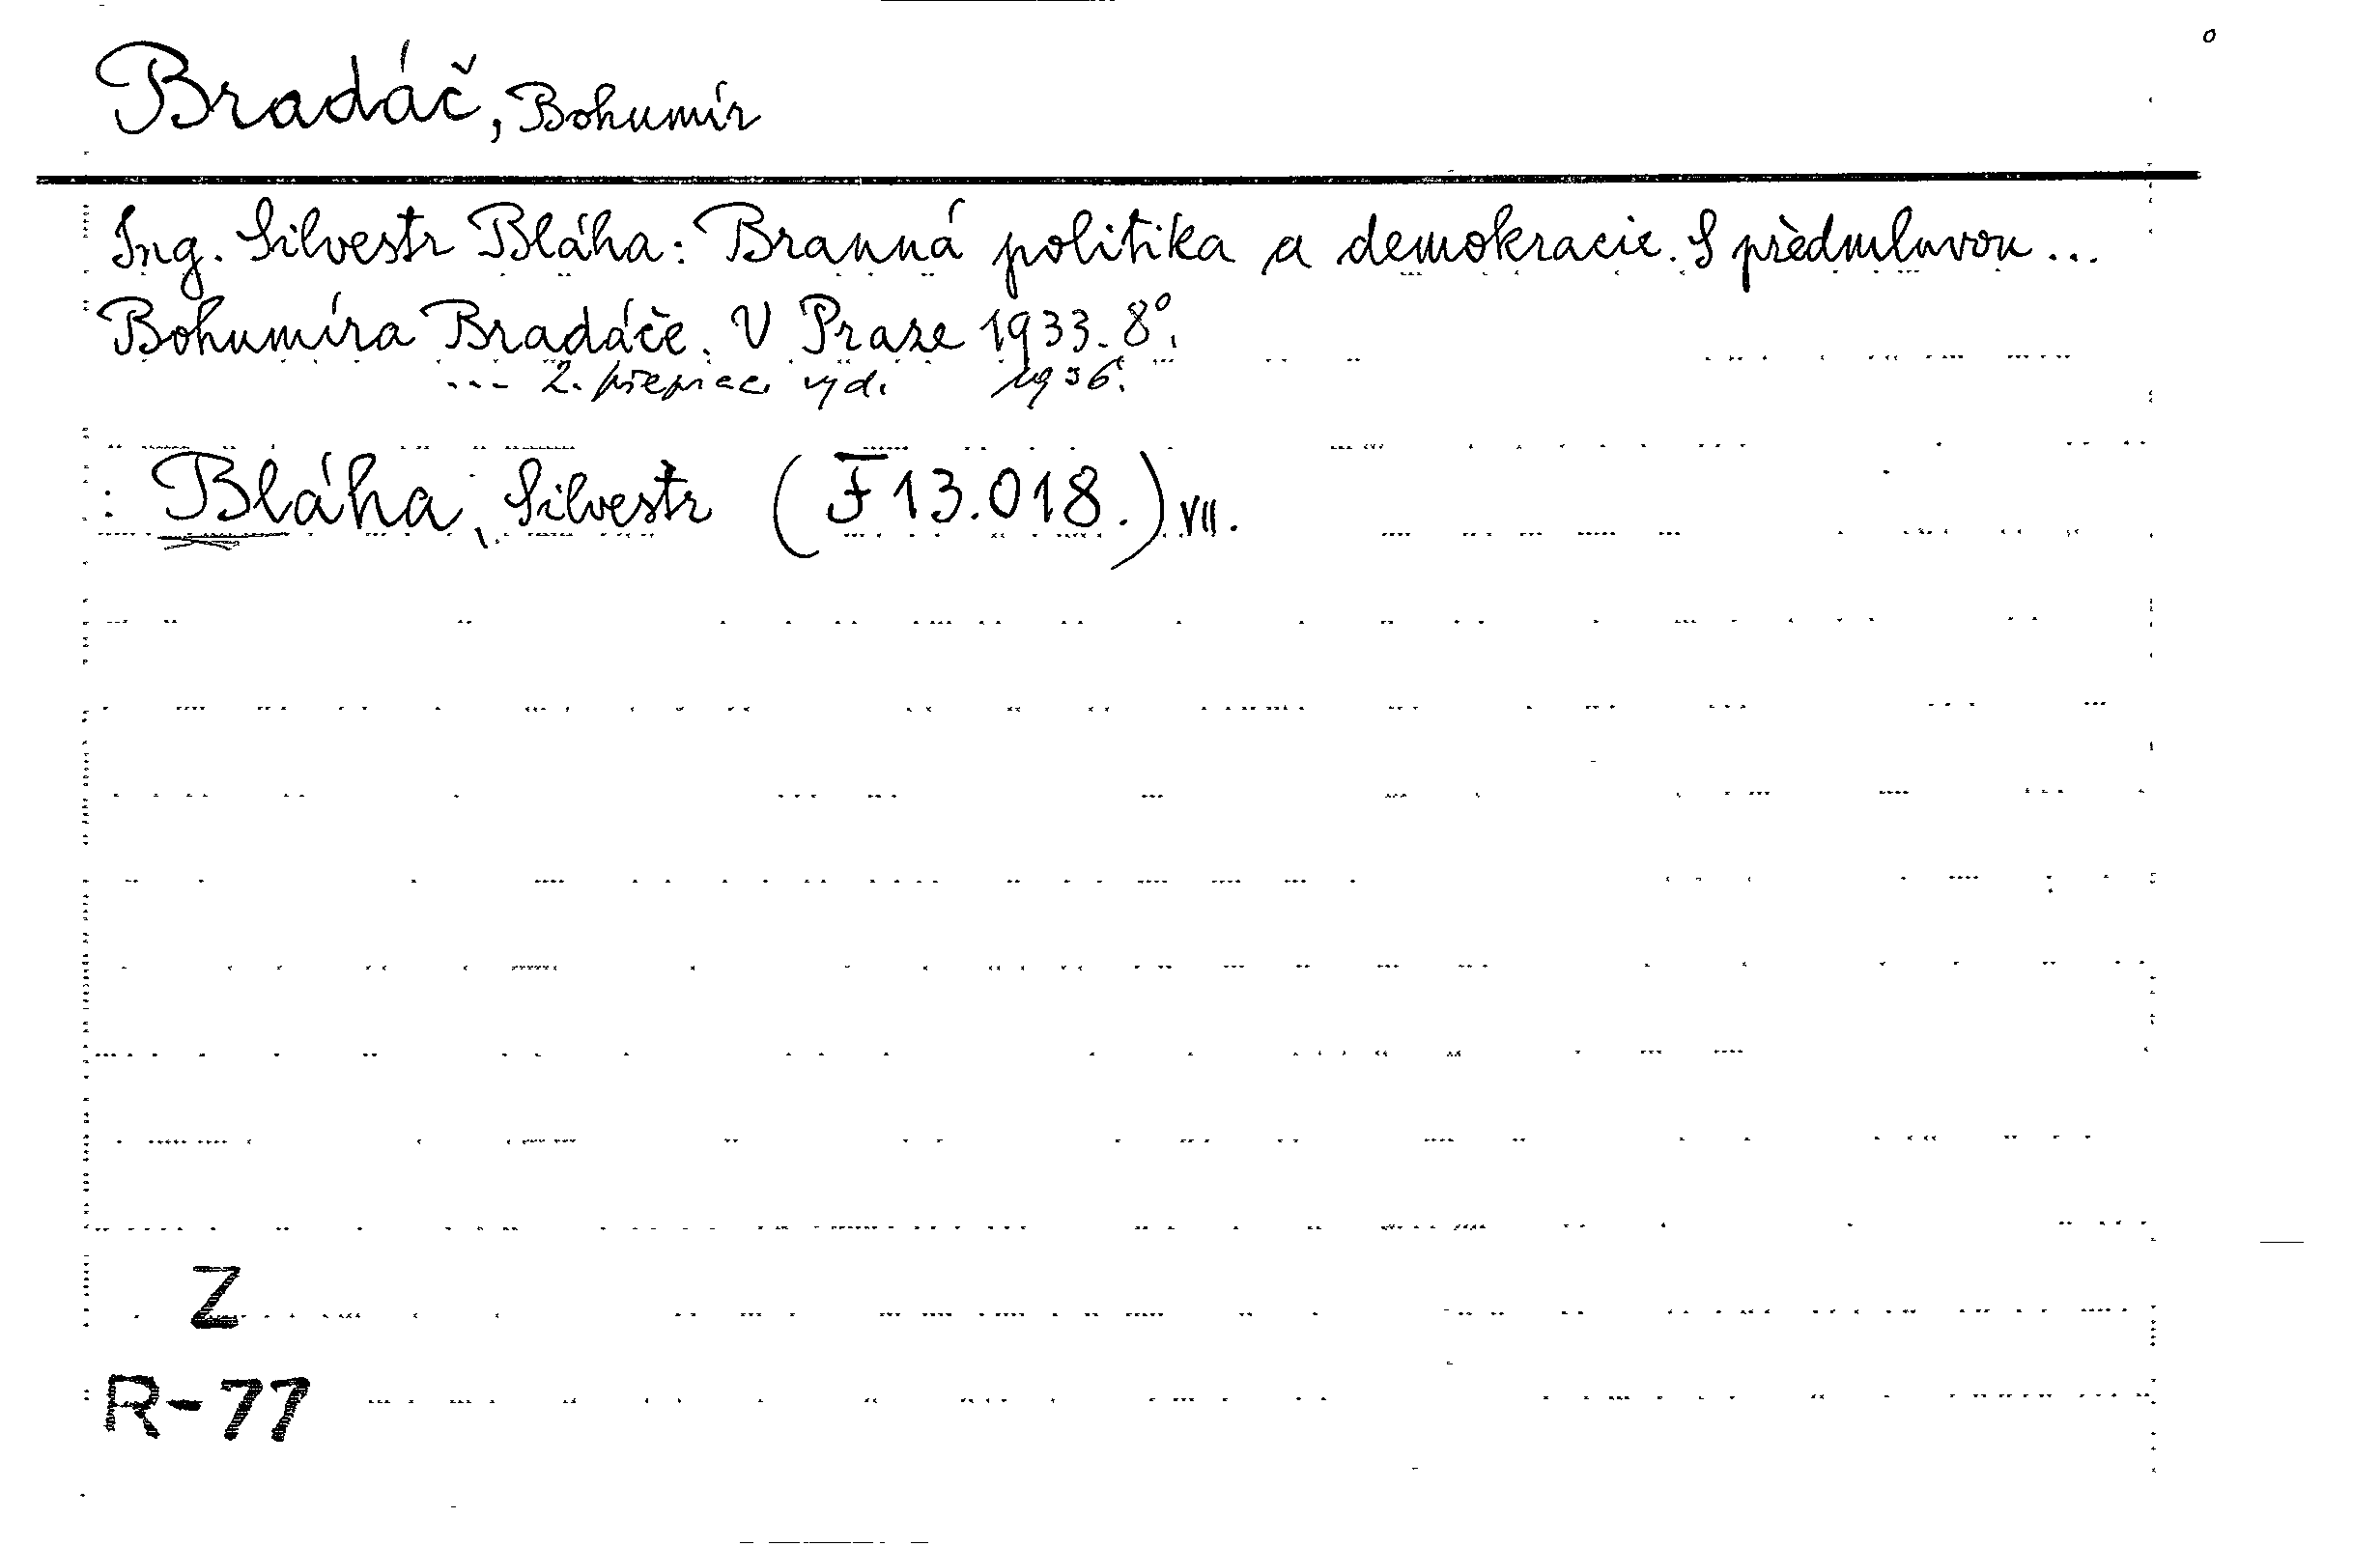 Bradáč, Bohumír
Ing. Silvestr Bláha: Branná politika a demokracie. S předmluvou...
Bohumíra Bradáče. V Praze 1933. 8°.
--- 2. přeprac. vyd. 1936.
: Bláha, Silvestr (F 13.018.) VII.
Z
R-77